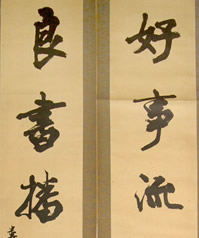 好事流
良書播